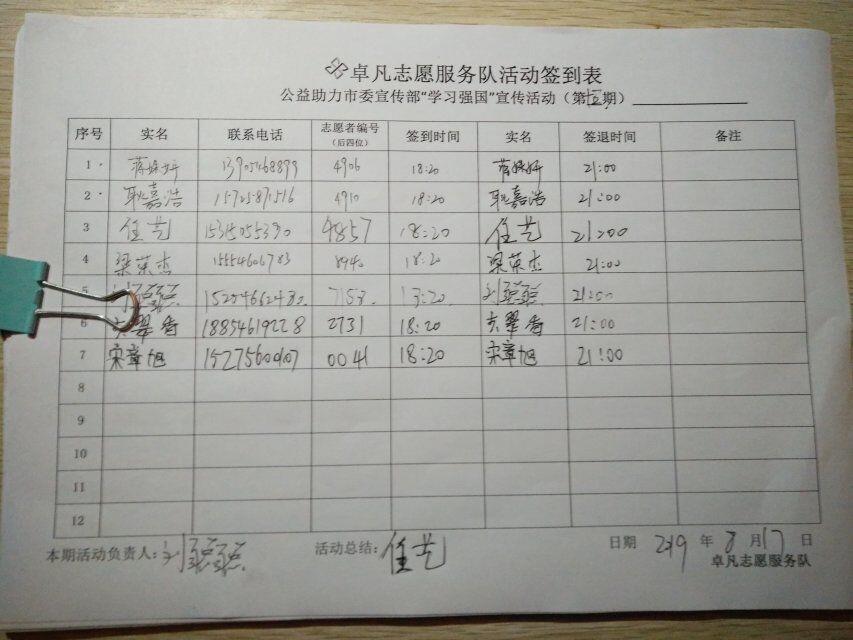 卓凡志愿服务队活动签到表
公益助力市委宣传部“学习强国”宣传活动（第 期）
序号 实名 联系电话 志愿者编号（后四位） 签到时间 实名 签退时间 备注
1 4906 18:20 21:00
2 耿嘉浩 15725871516 4910 18:20 耿嘉浩 21:00
3 任艺 15315055390 4857 18:20 任艺 21:00
4 梁荣杰 15554606783 8940 18:20 梁荣杰 21:00
5 7153 21:00
6 18854619228 2731 18:20 21:00
7 宋章旭 0041 18:20 宋章旭 21:00
8
9
10
11
12
本期活动负责人： 活动总结：任艺 日期 2019 年 8 月 17 日
卓凡志愿服务队